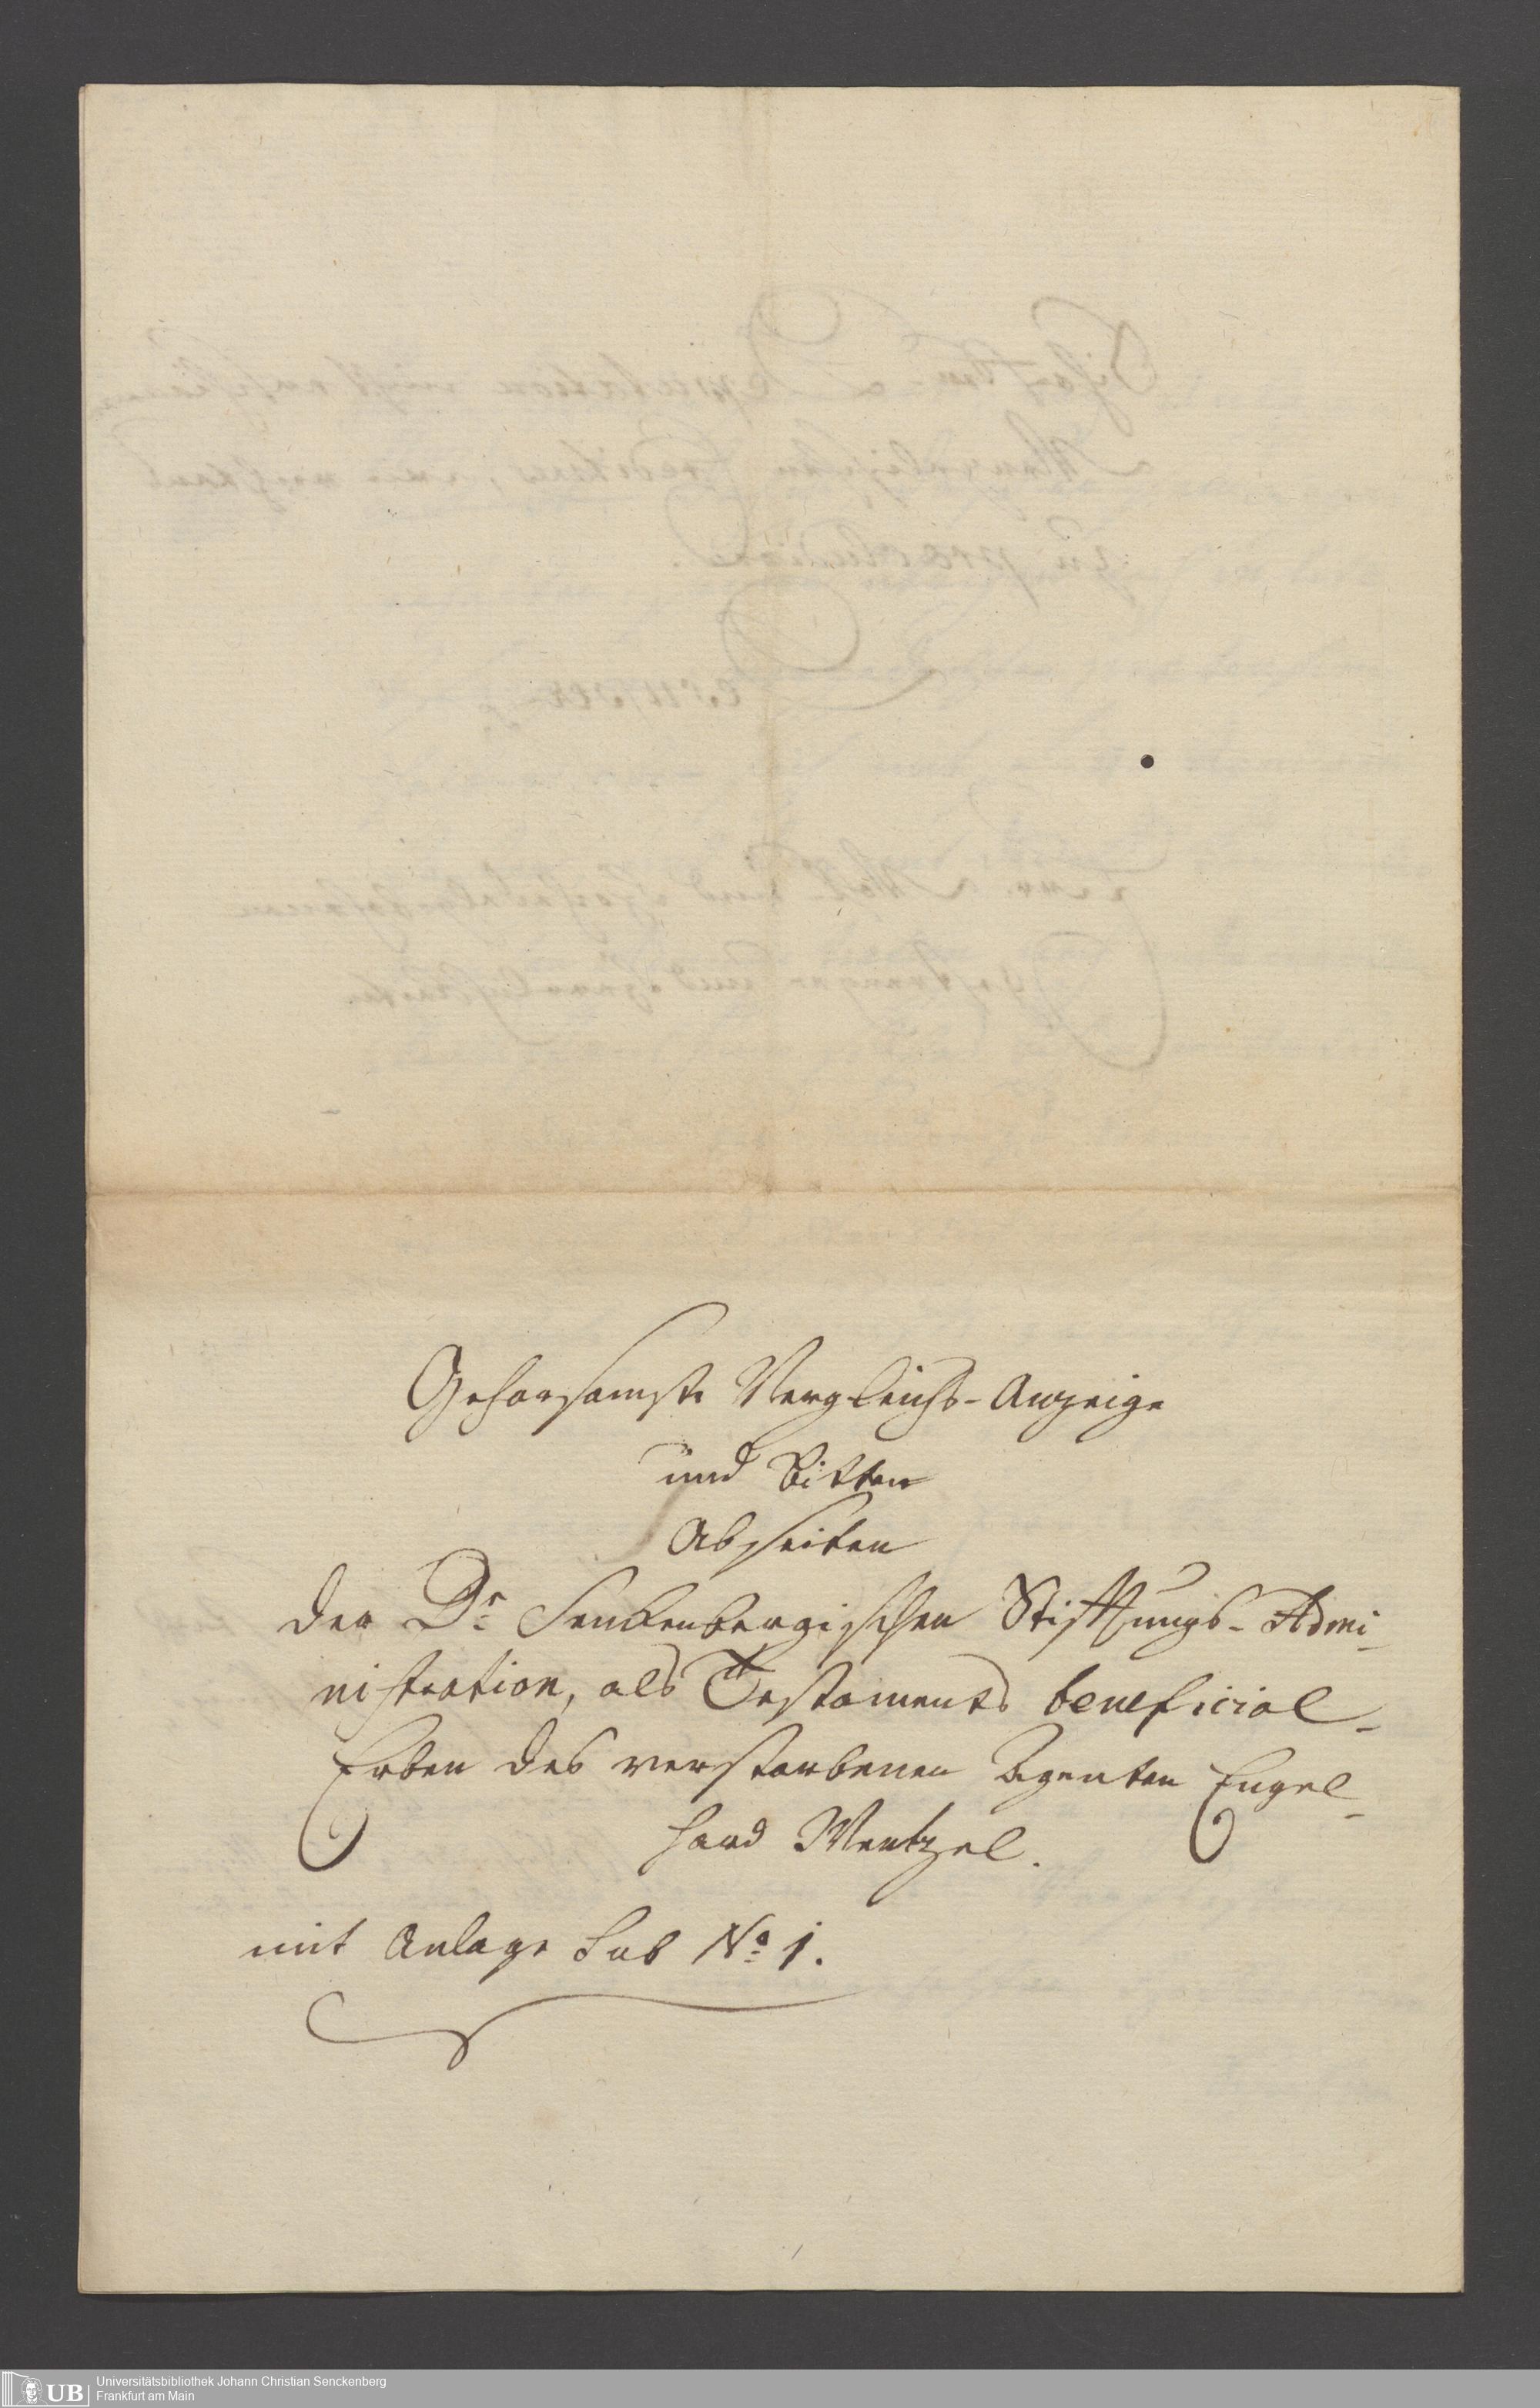 Gehorsamste Vergleichs-Anzeige
und Bitten
Abseiten
der Dr Senckenbergischen Stiftungs-Admi-
nistration, als Testaments beneficial-
Erben des verstorbenen Agenten Engel-
hard Mentzel.
mit Anlage sub No 1.
UB
Universitätsbibliothek Johann Christian Senckenberg
Frankfurt am Main